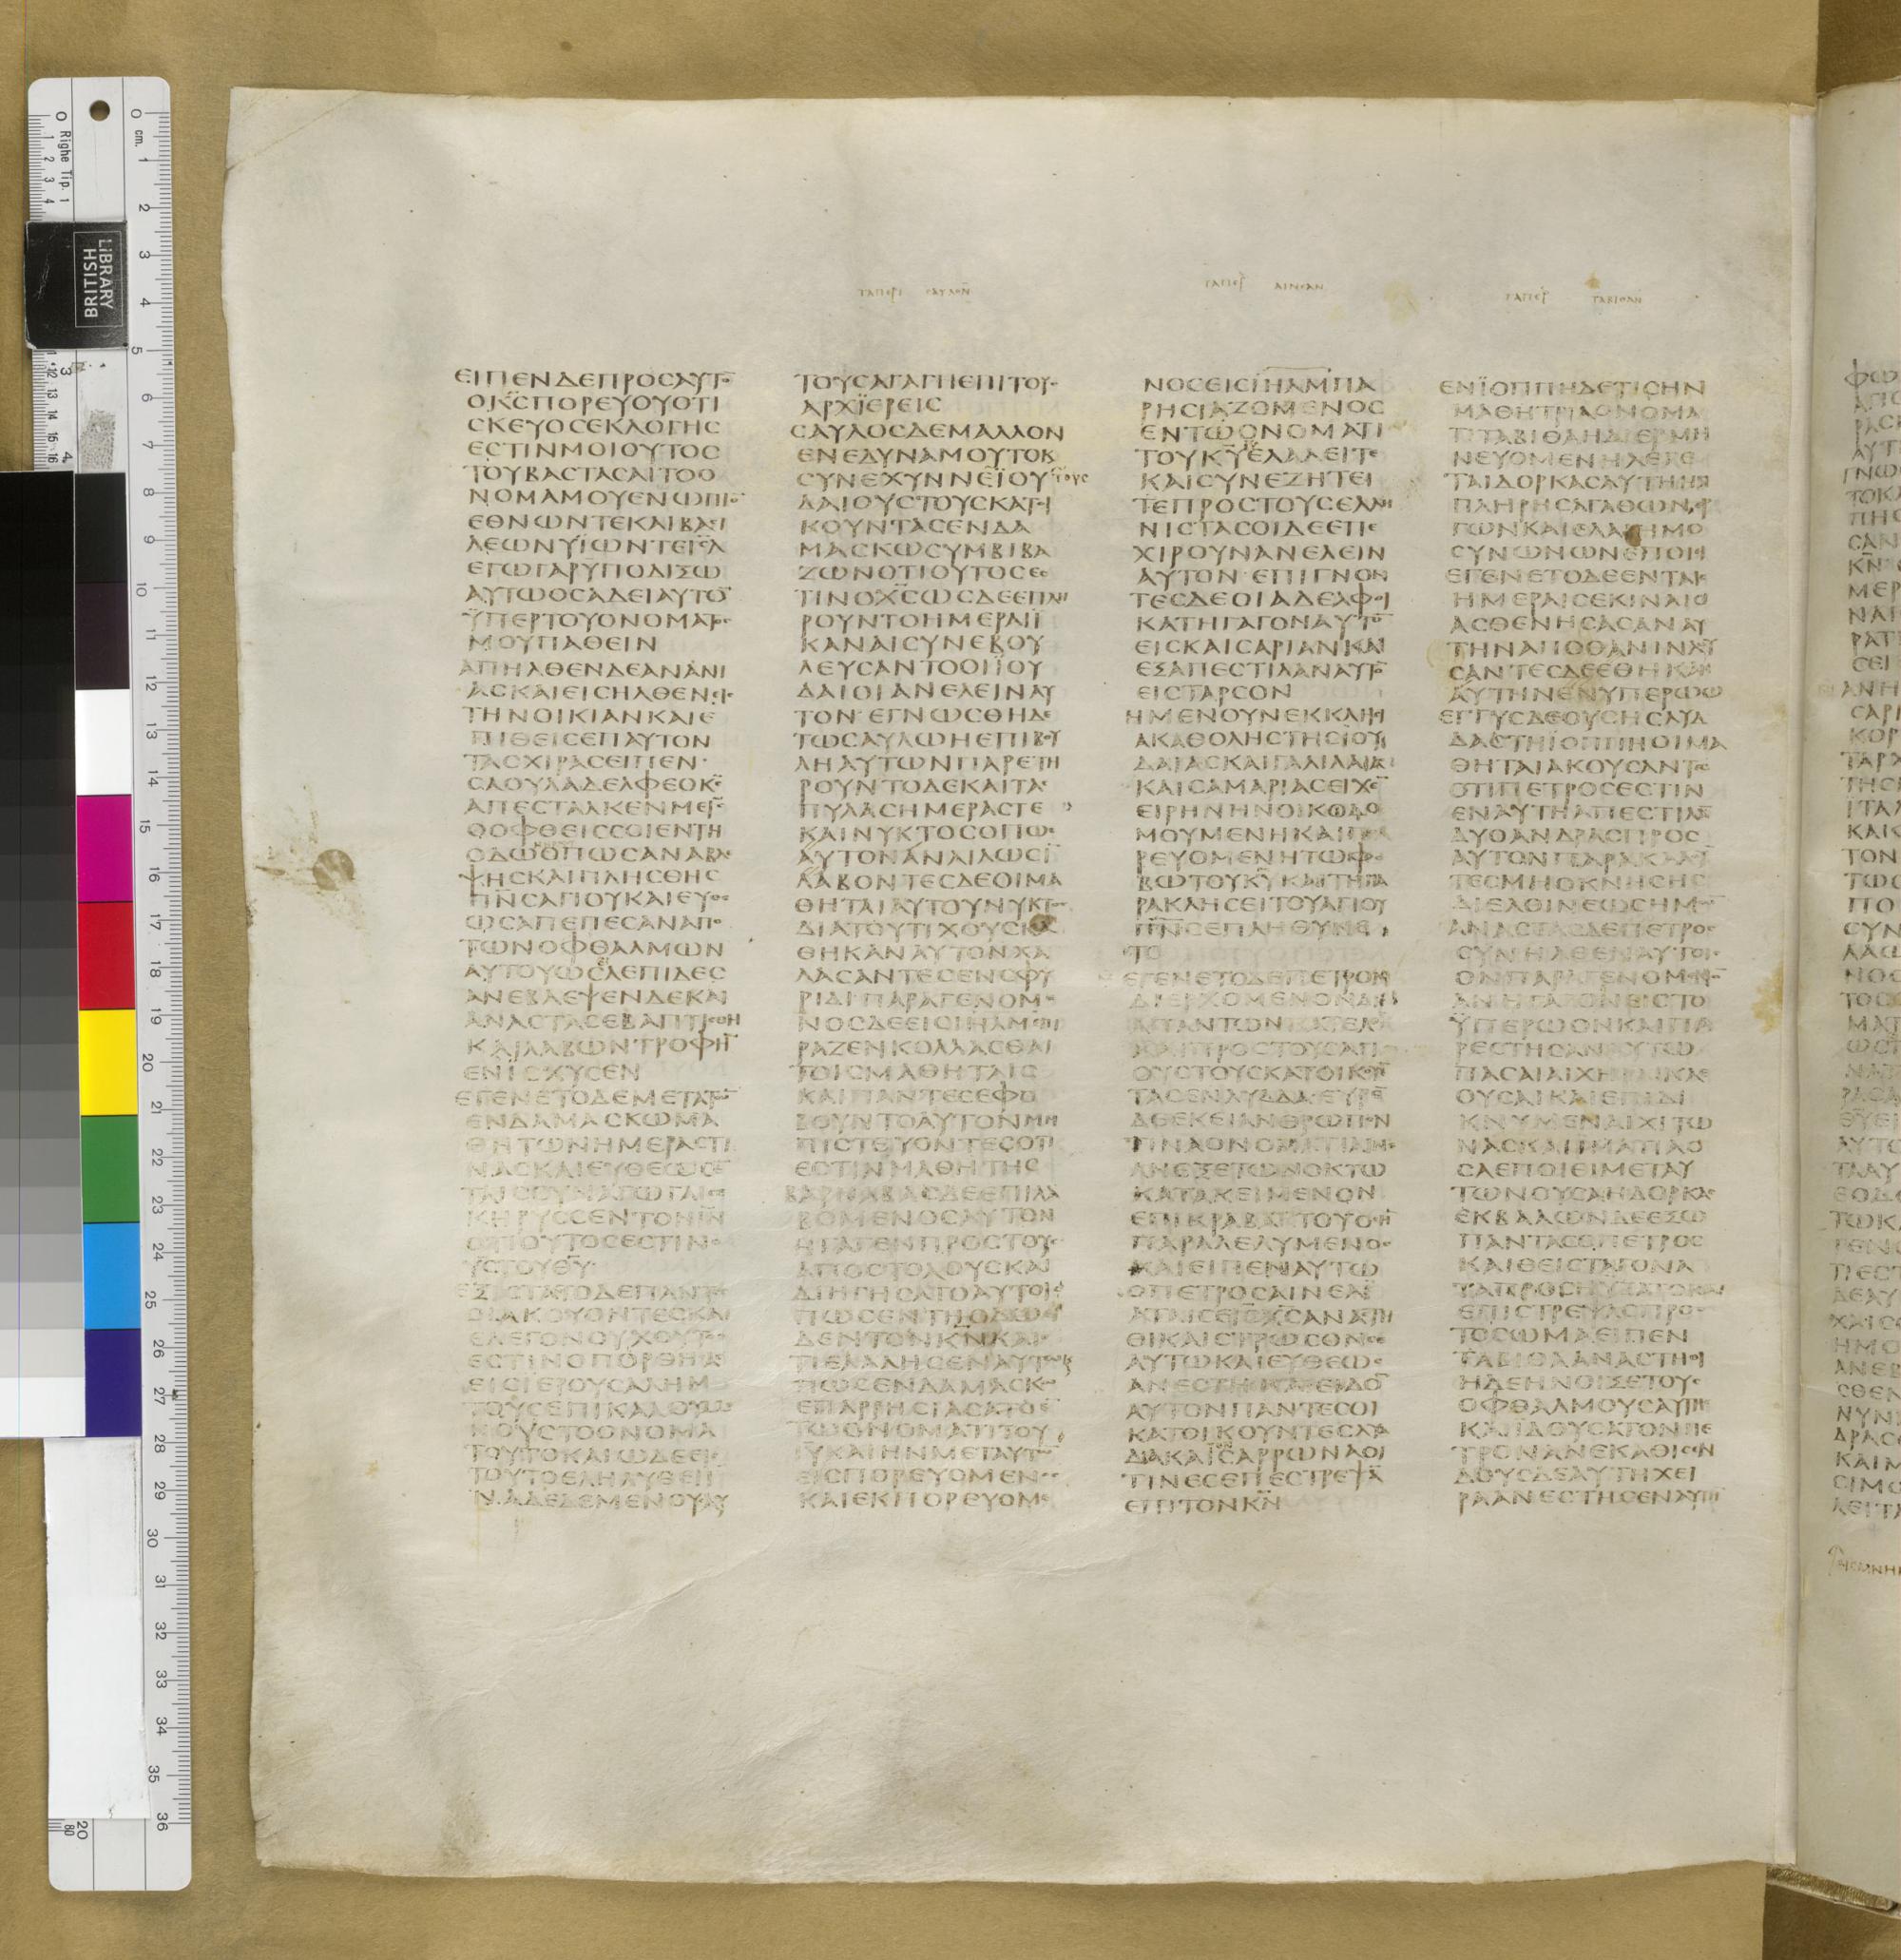 ΤΑΠΕΡΙ ϹΑΥΛΟΝ
ΤΑΠΕΡΙ ΑΙΝΕΑΝ
ΤΑΠΕΡΙ ΤΑΒΙΘΑΝ
ΕΙΠΕΝΔΕΠΡΟϹΑΥΤΟ̅
ΟΚ̅Ϲ̅ΠΟΡΕΥΟΥΟΤΙ
ϹΚΕΥΟϹΕΚΛΟΓΗϹ
ΕϹΤΙΝΜΟΙΟΥΤΟϹ
ΤΟΥΒΑϹΤΑϹΑΙΤΟΟ
ΝΟΜΑΜΟΥΕΝΩΠΙΟ̅
ΕΘΝΩΝΤΕΚΑΙΒΑϹΙ
ΛΕΩΝΥΙΩΝΤΕΙ̅Ϲ̅Λ̅
ΕΓΩΓΑΡΥΠΟΔΙΞΩ
ΑΥΤΩΟϹΑΔΕΙΑΥΤΟ̅
ΫΠΕΡΤΟΥΟΝΟΜΑΤΟϹ
ΜΟΥΠΑΘΕΙΝ
ΑΠΗΛΘΕΝΔΕΑΝΑΝΙ
ΑϹΚΑΙΕΙϹΗΛΘΕΝΕΙϹ
ΤΗΝΟΙΚΙΑΝΚΑΙΕ
ΠΙΘΕΙϹΕΠΑΥΤΟΝ
ΤΑϹΧΙΡΑϹΕΙΠΕΝ
ϹΑΟΥΛΑΔΕΛΦΕΟΚ̅Ϲ̅
ΑΠΕϹΤΑΛΚΕΝΜΕΙ̅Ϲ̅
ΟΟΦΘΕΙϹϹΟΙΕΝΤΗ
ΟΔΩΟΠΩϹΑΝΑΒΛΕ
ΨΗϹΚΑΙΠΛΗϹΘΗϹ
Π̅Ν̅Ϲ̅ΑΓΙΟΥΚΑΙΕΥΘΕ
ΩϹΑΠΕΠΕϹΑΝΑΠΟ
ΤΩΝΟΦΘΑΛΜΩΝ
ΑΥΤΟΥΩϹΛΕΠΙΔΕϹ
ΑΝΕΒΛΕΨΕΝΔΕΚΑΙ
ΑΝΑϹΤΑϹΕΒΑΠΤΙϹΘΗ
ΚΑΙΛΑΒΩΝΤΡΟΦΗ̅
ΕΝΙϹΧΥϹΕΝ
ΕΓΕΝΕΤΟΔΕΜΕΤΑΤΩ̅
ΕΝΔΑΜΑϹΚΩΜΑ
ΘΗΤΩΝΗΜΕΡΑϹΤΙ
ΝΑϹΚΑΙΕΥΘΕΩϹΕ̅
ΤΑΙϹϹΥΝΑΓΩΓΑΙϹ
ΕΚΗΡΥϹϹΕΝΤΟΝΙ̅Ν̅
ΟΤΙΟΥΤΟϹΕϹΤΙΝΟ
ΥϹΤΟΥΘ̅Υ̅
ΕΞΙϹΤΑΤΟΔΕΠΑΝΤΕϹ
ΟΙΑΚΟΥΟΝΤΕϹΚΑΙ
ΕΛΕΓΟΝΟΥΧΟΥΤΟϹ
ΕϹΤΙΝΟΠΟΡΘΗϹΑϹ
ΕΙϹΙΕΡΟΥϹΑΛΗΜ
ΤΟΥϹΕΠΙΚΑΛΟΥΜΕ
ΝΟΥϹΤΟΟΝΟΜΑ
ΤΟΥΤΟΚΑΙΩΔΕΕΙϹ
ΤΟΥΤΟΕΛΗΛΥΘΕΙΙ
ΝΑΔΕΔΕΜΕΝΟΥϹΑΥ
ΤΟΥϹΑΓΑΓΗΕΠΙΤΟΥϹ
ΑΡΧΪΕΡΕΙϹ
ϹΑΥΛΟϹΔΕΜΑΛΛΟΝ
ΕΝΕΔΥΝΑΜΟΥΤΟΚΑΙ
ϹΥΝΕΧΥΝΝΕΪΟΥ ΤΟΥϹ
ΔΑΙΟΥϹΤΟΥϹΚΑΤΟΙ
ΚΟΥΝΤΑϹΕΝΔΑ
ΜΑϹΚΩϹΥΜΒΙΒΑ
ΖΩΝΟΤΙΟΥΤΟϹΕϹ
ΤΙΝΟΧ̅Ϲ̅ΩϹΔΕΕΠΛΗ
ΡΟΥΝΤΟΗΜΕΡΑΙΪ
ΚΑΝΑΙϹΥΝΕΒΟΥ
ΛΕΥϹΑΝΤΟΟΙΪΟΥ
ΔΑΙΟΙΑΝΕΛΕΙΝΑΥ
ΤΟΝΕΓΝΩϹΘΗΔΕ
ΤΩϹΑΥΛΩΗΕΠΙΒΟΥ
ΛΗΑΥΤΩΝΠΑΡΕΤΗ
ΡΟΥΝΤΟΔΕΚΑΙΤΑϹ
ΠΥΛΑϹΗΜΕΡΑϹΤΕ
ΚΑΙΝΥΚΤΟϹΟΠΩϹ
ΑΥΤΟΝΑΝΑΙΛΩϹΙ̅
ΛΑΒΟΝΤΕϹΔΕΟΙΜΑ
ΘΗΤΑΙΑΥΤΟΥΝΥΚΤΟϹ
ΔΙΑΤΟΥΤΙΧΟΥϹΚΑ
ΘΗΚΑΝΑΥΤΟΝΧΑ
ΛΑϹΑΝΤΕϹΕΝϹΦΥ
ΡΙΔΙΠΑΡΑΓΕΝΟΜΕ
ΝΟϹΔΕΕΙϹΙΗΛΜΕΠΙ
ΡΑΖΕΝΚΟΛΛΑϹΘΑΙ
ΤΟΙϹΜΑΘΗΤΑΙϹ
ΚΑΙΠΑΝΤΕϹΕΦΟ
ΒΟΥΝΤΟΑΥΤΟΝΜΗ
ΠΙϹΤΕΥΟΝΤΕϹΟΤΙ
ΕϹΤΙΝΜΑΘΗΤΗϹ
ΒΑΡΝΑΒΑϹΔΕΕΠΙΛΑ
ΒΟΜΕΝΟϹΑΥΤΟΝ
ΗΓΑΓΕΝΠΡΟϹΤΟΥϹ
ΑΠΟϹΤΟΛΟΥϹΚΑΙ
ΔΙΗΓΗϹΑΤΟΑΥΤΟΙϹ
ΠΩϹΕΝΤΗΟΔΩΕΙ
ΔΕΝΤΟΝΚ̅Ν̅ΚΑΙΟ
ΤΙΕΛΑΛΗϹΕΝΑΥΤΩΚ
ΠΩϹΕΝΔΑΜΑϹΚΩ
ΕΠΑΡΡΗϹΙΑϹΑΤΟΕ̅
ΤΩΟΝΟΜΑΤΙΤΟΥ
Ι̅Υ̅ΚΑΙΗΝΜΕΤΑΥΤΩ̅
ΕΙϹΠΟΡΕΥΟΜΕΝΟϹ
ΚΑΙΕΚΠΟΡΕΥΟΜΕ
ΝΟϹΕΙϹΙ̅Η̅Λ̅Μ̅ΠΑ
ΡΗϹΙΑΖΟΜΕΝΟϹ
ΕΝΤΩΟΝΟΜΑΤΙ
ΤΟΥΚ̅Υ̅ΕΛΑΛΕΙΤΕ
ΚΑΙϹΥΝΕΖΗΤΕΙ
ΤΕΠΡΟϹΤΟΥϹΕΛΛΗ
ΝΙϹΤΑϹΟΙΔΕΕΠΕ
ΧΙΡΟΥΝΑΝΕΛΕΙΝ
ΑΥΤΟΝΕΠΙΓΝΟΝ
ΤΕϹΔΕΟΙΑΔΕΛΦΟΙ
ΚΑΤΗΓΑΓΟΝΑΥΤΟ̅
ΕΙϹΚΑΙϹΑΡΙΑΝΚΑΙ
ΕΞΑΠΕϹΤΙΛΑΝΑΥΤΟ̅
ΕΙϹΤΑΡϹΟΝ
ΗΜΕΝΟΥΝΕΚΚΛΗϹΙ
ΑΚΑΘΟΛΗϹΤΗϹΙΟΥ
ΔΑΙΑϹΚΑΙΓΑΛΙΛΑΙΑϹ
ΚΑΙϹΑΜΑΡΙΑϹΕΙΧΕ̅
ΕΙΡΗΝΗΝΟΙΚΟΔΟ
ΜΟΥΜΕΝΗΚΑΙΠΟ
ΡΕΥΟΜΕΝΗΤΩΦΟ
ΒΩΤΟΥΚ̅Υ̅ΚΑΙΤΗΠΑ
ΡΑΚΛΗϹΕΙΤΟΥΑΓΙΟΥ
Π̅Ν̅Ϲ̅ΕΠΛΗΘΥΝΕ
ΤΟ
ΕΓΕΝΕΤΟΔΕΠΕΤΡΟΝ
ΔΙΕΡΧΟΜΕΝΟΝΔΙΑ
ΠΑΝΤΩΝΚΑΤΕΛΘΙ̅
ΚΑΙΠΡΟϹΤΟΥϹΑΓΙ
ΟΥϹΤΟΥϹΚΑΤΟΙΚΟΥ̅
ΤΑϹΕΝΛΥΔΔΑΕΥΡΕ̅
ΔΕΕΚΕΙΑΝΘΡΩΠΟΝ
ΤΙΝΑΟΝΟΜΑΤΙΑΙΝΕ
ΑΝΕΞΕΤΩΝΟΚΤΩ
ΚΑΤΑΚΕΙΜΕΝΟΝ
ΕΠΙΚΡΑΒΑΚΤΟΥΟϹΗ̅
ΠΑΡΑΛΕΛΥΜΕΝΟϹ
ΚΑΙΕΙΠΕΝΑΥΤΩ
ΟΠΕΤΡΟϹΑΙΝΕΑ
ΙΑΤΑΙϹΕΙ̅Ϲ̅Χ̅Ϲ̅ΑΝΑϹΤΗ
ΘΙΚΑΙϹΤΡΩϹΟΝϹΕ
ΑΥΤΩΚΑΙΕΥΘΕΩϹ
ΑΝΕϹΤΗΚΑΙΕΙΔΟ̅
ΑΥΤΟΝΠΑΝΤΕϹΟΙ
ΚΑΤΟΙΚΟΥΝΤΕϹΛΥΔ
ΔΑΚΑΙϹΑΡΡΩΝΑΟΙ
ΤΙΝΕϹΕΠΕϹΤΡΕΨΑ̅
ΕΠΙΤΟΝΚ̅Ν̅
ΕΝΪΟΠΠΗΔΕΤΙϹΗΝ
ΜΑΘΗΤΡΙΑΟΝΟΜΑ
ΤΙΤΑΒΙΘΑΗΔΙΕΡΜΗ
ΝΕΥΟΜΕΝΗΛΕΓΕ
ΤΑΙΔΟΡΚΑϹΑΥΤΗΗΝ
ΠΛΗΡΗϹΑΓΑΘΩΝΕΡ
ΓΩΝΚΑΙΕΛΑΙΗΜΟ
ϹΥΝΩΝΩΝΕΠΟΙΕΙ
ΕΓΕΝΕΤΟΔΕΕΝΤΑΙϹ
ΗΜΕΡΑΙϹΕΚΙΝΑΙϹ
ΑϹΘΕΝΗϹΑϹΑΝΑΥ
ΤΗΝΑΠΟΘΑΝΙΝΛΟΥ
ϹΑΝΤΕϹΔΕΕΘΗΚΑΝ
ΑΥΤΗΝΕΝΥΠΕΡΩΩ
ΕΓΓΥϹΔΕΟΥϹΗϹΛΥΔ
ΔΑϹΤΗΪΟΠΠΗΟΙΜΑ
ΘΗΤΑΙΑΚΟΥϹΑΝΤΕϹ
ΟΤΙΠΕΤΡΟϹΕϹΤΙΝ
ΕΝΑΥΤΗΑΠΕϹΤΙΛΑ̅
ΔΥΟΑΝΔΡΑϹΠΡΟϹ
ΑΥΤΟΝΠΑΡΑΚΑΛΟΥ̅
ΤΕϹΜΗΟΚΝΗϹΗϹ
ΔΙΕΛΘΙΝΕΩϹΗΜΩ̅
ΑΝΑϹΤΑϹΔΕΠΕΤΡΟϹ
ϹΥΝΗΛΘΕΝΑΥΤΟΙϹ
ΟΝΠΑΡΑΓΕΝΟΜΕΝΟ̅
ΑΝΗΓΑΓΟΝΕΙϹΤΟ
ΫΠΕΡΩΟΝΚΑΙΠΑ
ΡΕϹΤΗϹΑΝΑΥΤΩ
ΠΑϹΑΙΑΙΧΗΡΑΙΚΛΑΙ
ΟΥϹΑΙΚΑΙΕΠΙΔΙ
ΚΝΥΜΕΝΑΙΧΙΤΩ
ΝΑϹΚΑΙΙΜΑΤΙΑΟ
ϹΑΕΠΟΙΕΙΜΕΤΑΥ
ΤΩΝΟΥϹΑΗΔΟΡΚΑϹ
ΕΚΒΑΛΩΝΔΕΕΞΩ
ΠΑΝΤΑϹΟΠΕΤΡΟϹ
ΚΑΙΘΕΙϹΤΑΓΟΝΑ
ΤΑΠΡΟϹΗΥΞΑΤΟΚΑΙ
ΕΠΙϹΤΡΕΨΑϹΠΡΟϹ
ΤΟϹΩΜΑΕΙΠΕΝ
ΤΑΒΙΘΑΑΝΑϹΤΗΘΙ
ΗΔΕΗΝΟΙΞΕΤΟΥϹ
ΟΦΘΑΛΜΟΥϹΑΥΤΗϹ
ΚΑΙΪΔΟΥϹΑΤΟΝΠΕ
ΤΡΟΝΑΝΕΚΑΘΙϹΕΝ
ΔΟΥϹΔΕΑΥΤΗΧΕΙ
ΡΑΑΝΕϹΤΗϹΕΝΑΥΤΗ̅